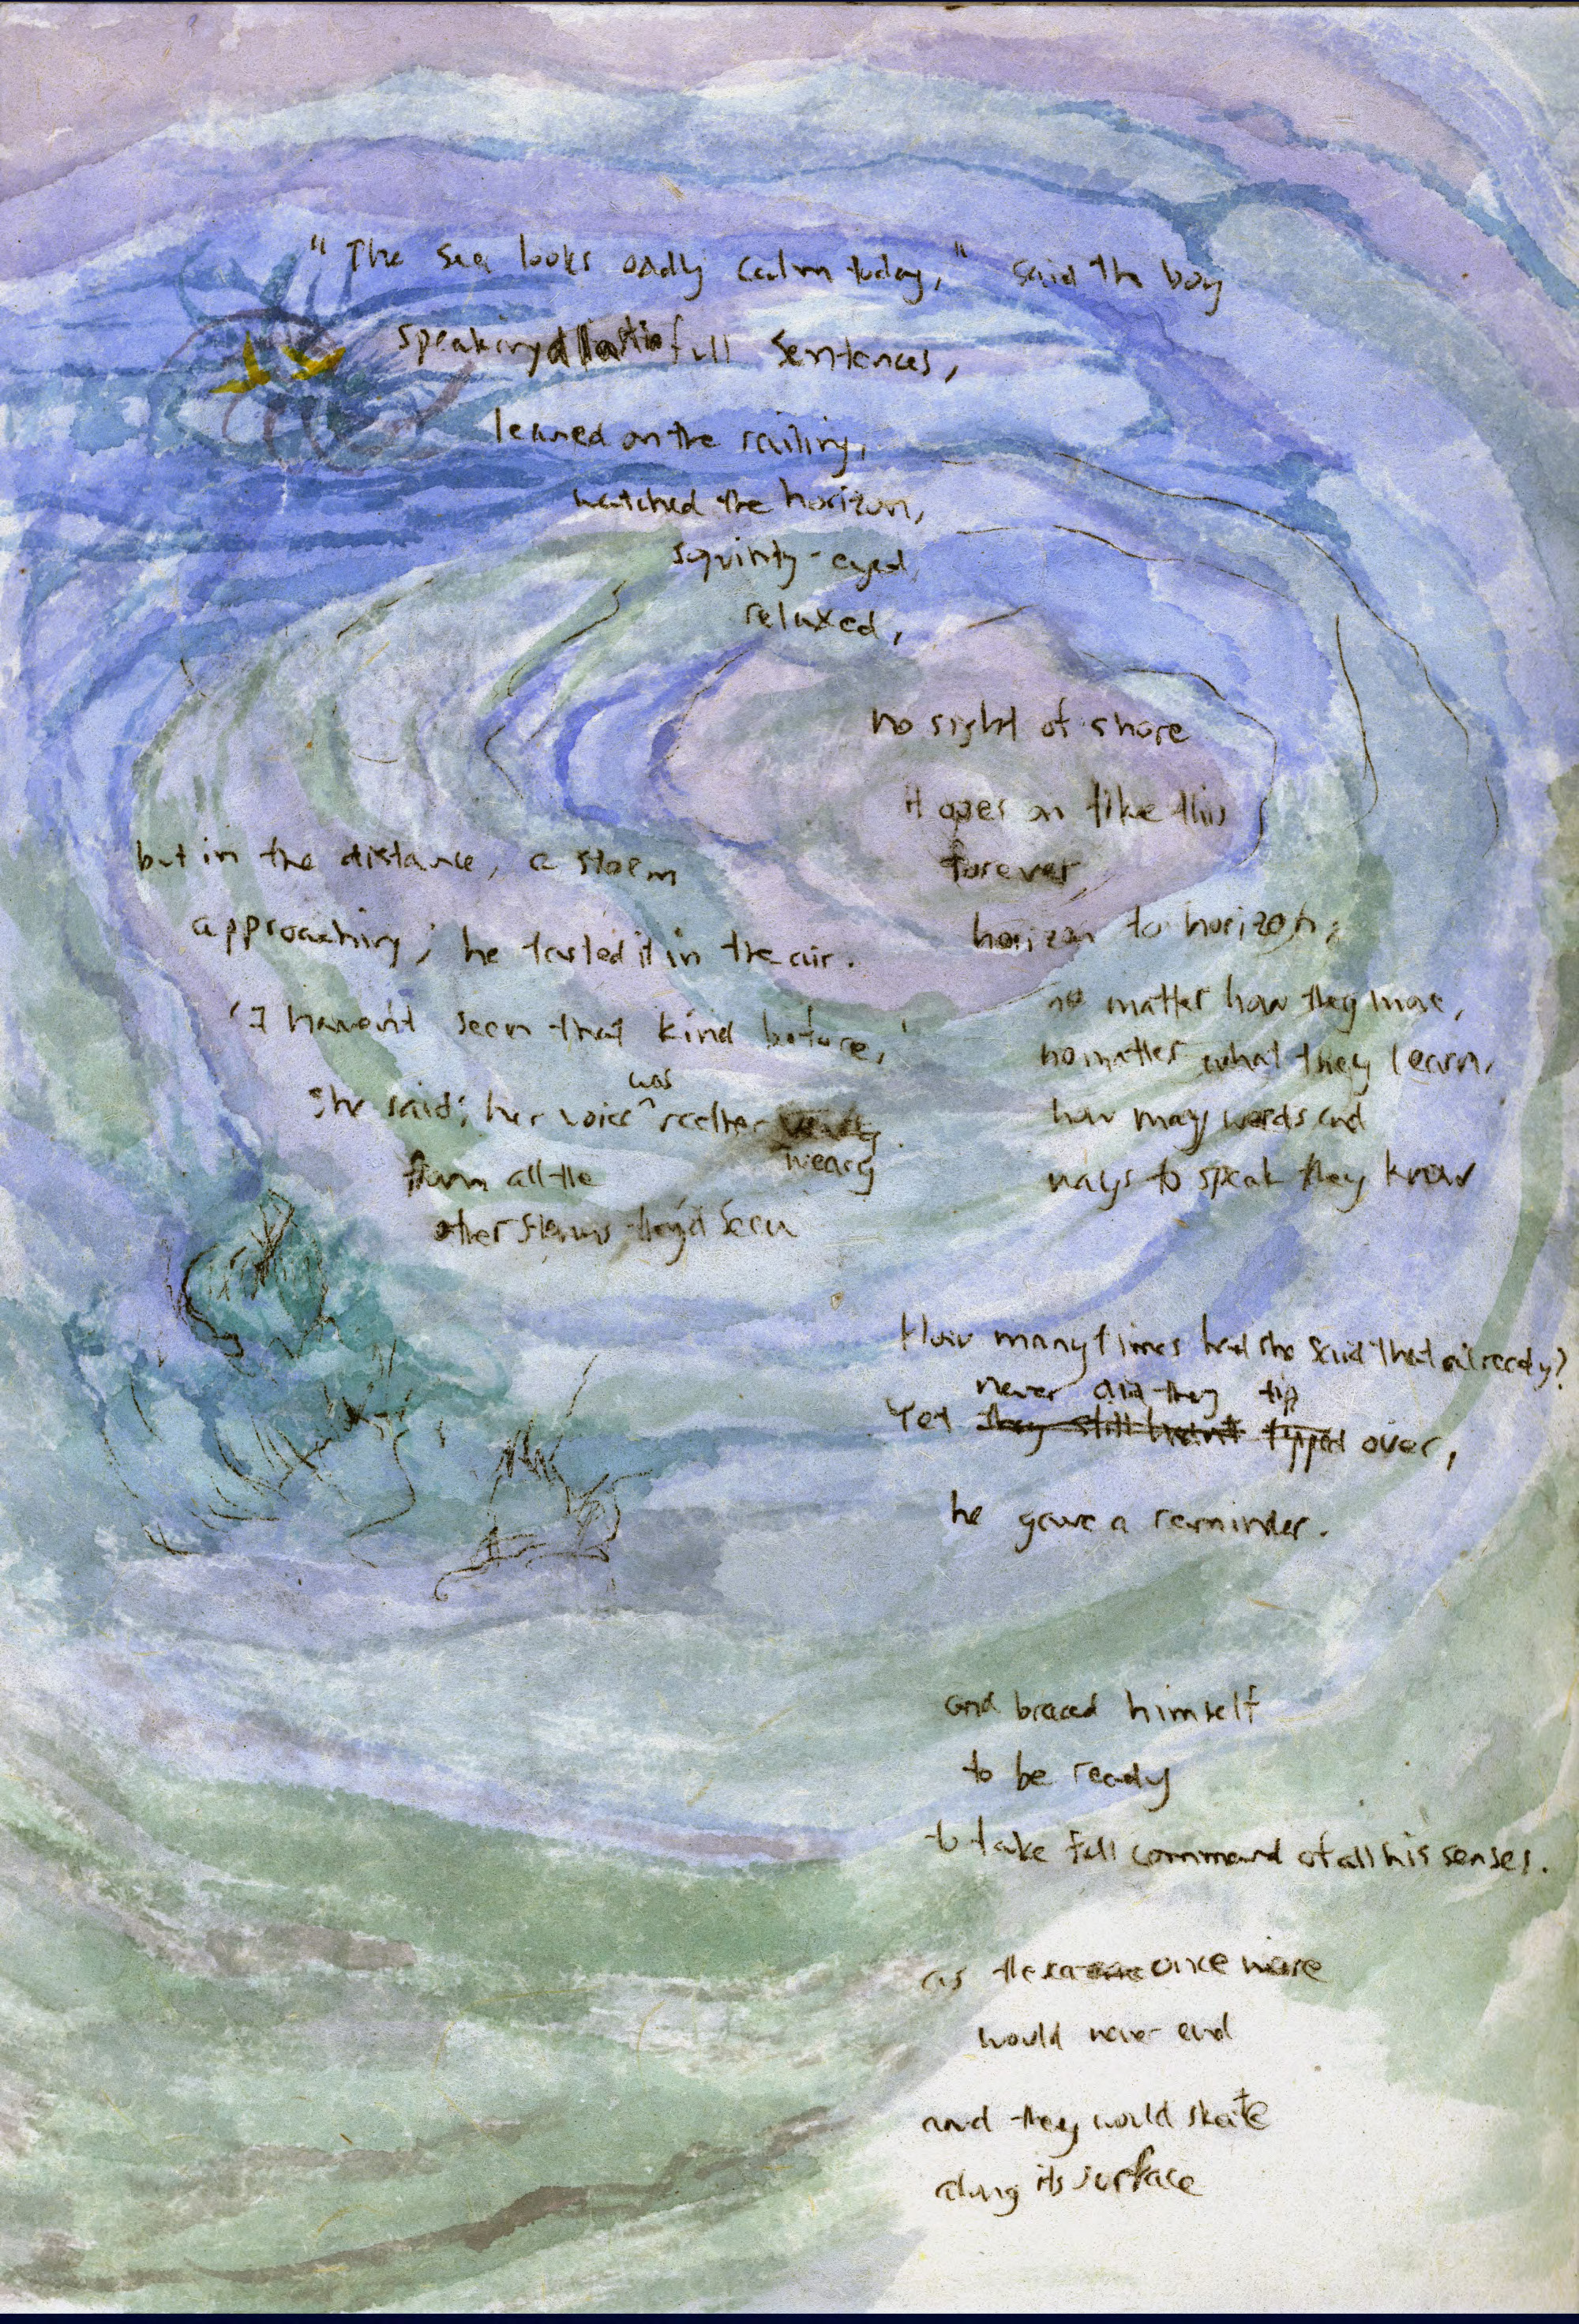 "The sea looks oddly calm today," said the boy
speaking full sentences,
leaned on the railing,
watched the horizon,
squinty-eyed,
relaxed,
no sight of shore
it goes on like this
forever
horizon to horizon;
no matter how they move,
no matter what they learn,
how may words and
ways to speak they know
but in the distance, a storm
approaching; he tasted it in the air.
'I haven't seen that kind before,'
she said; her voice was rather weary
from all the
other storms they'd seen
How many times had she said that already?
Yet never did they tip over,
he gave a reminder.
and braced himself
to be ready
to take full command of all his senses.
as the once more
would never end
and they would skate
along its surface